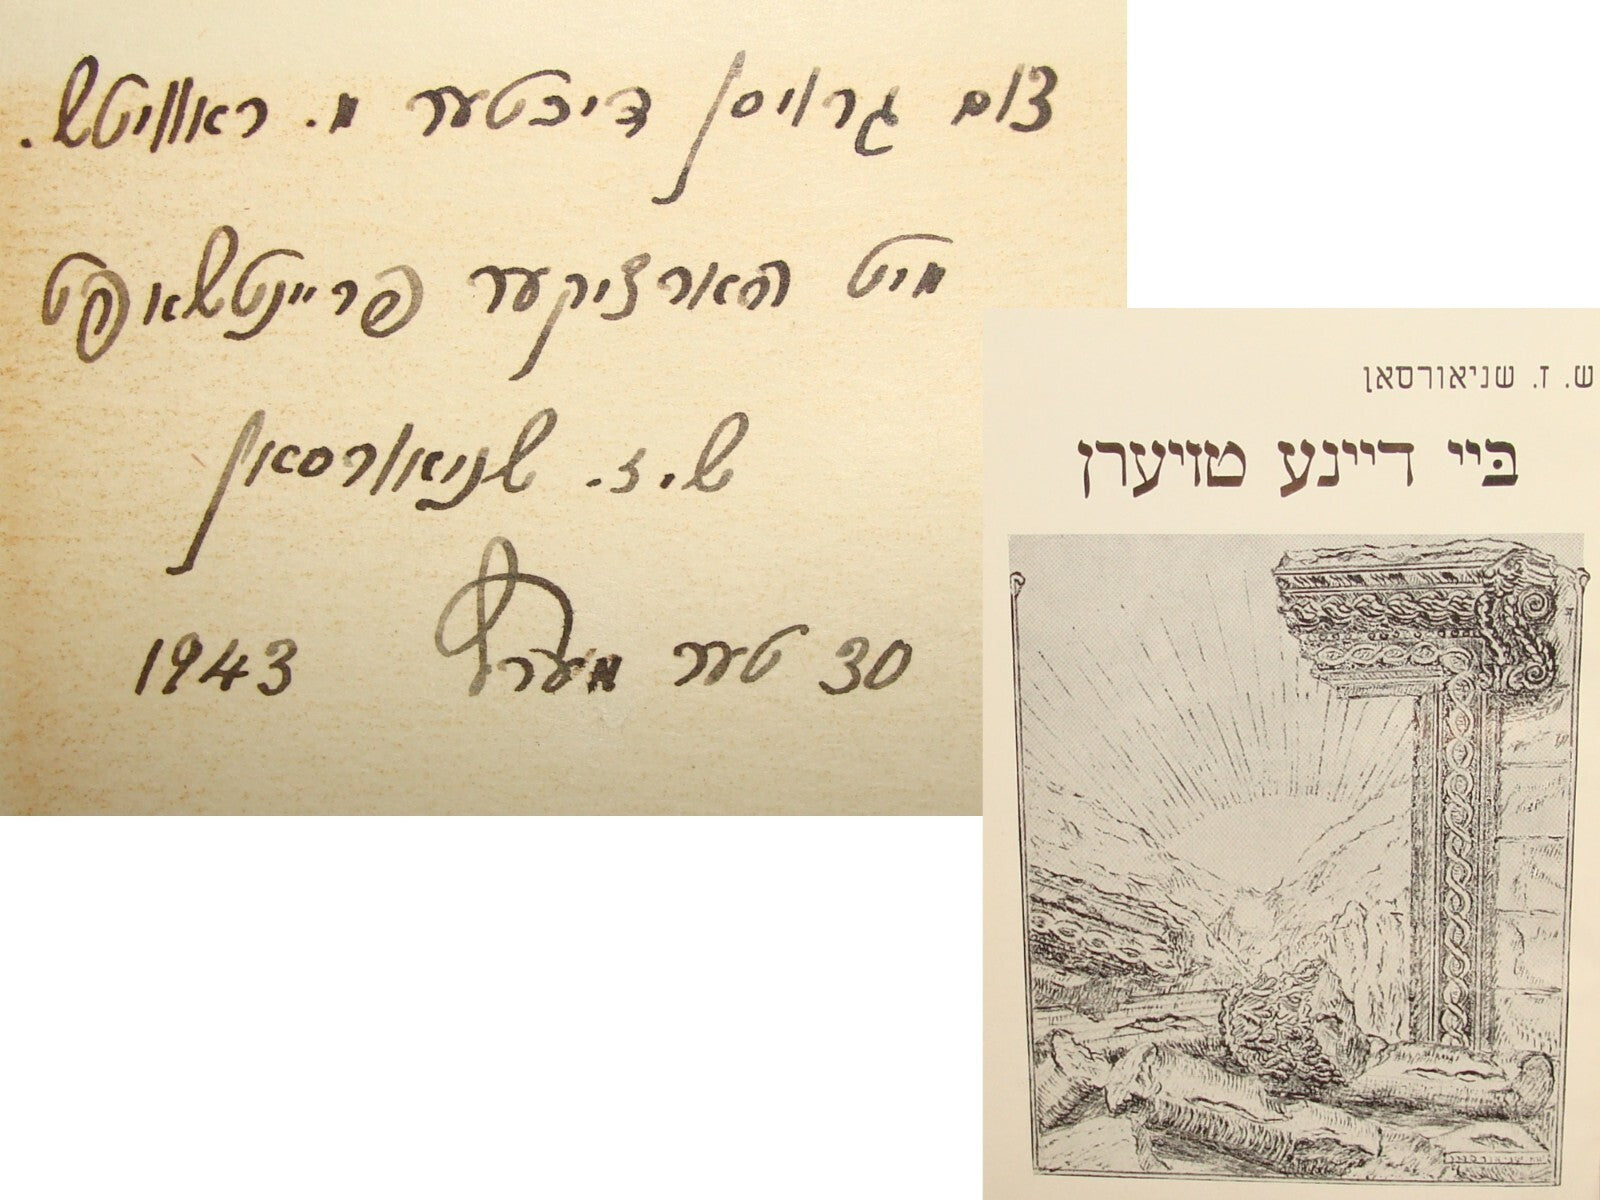 צום גרויסן דיכטער מ. ראוויטש.
מיט הארציקער פריינטשאפט
ש. ז. שניאורסאן
30 טער מערץ 1943
ש. ז. שניאורסאן
בּיי דיינע טויערן